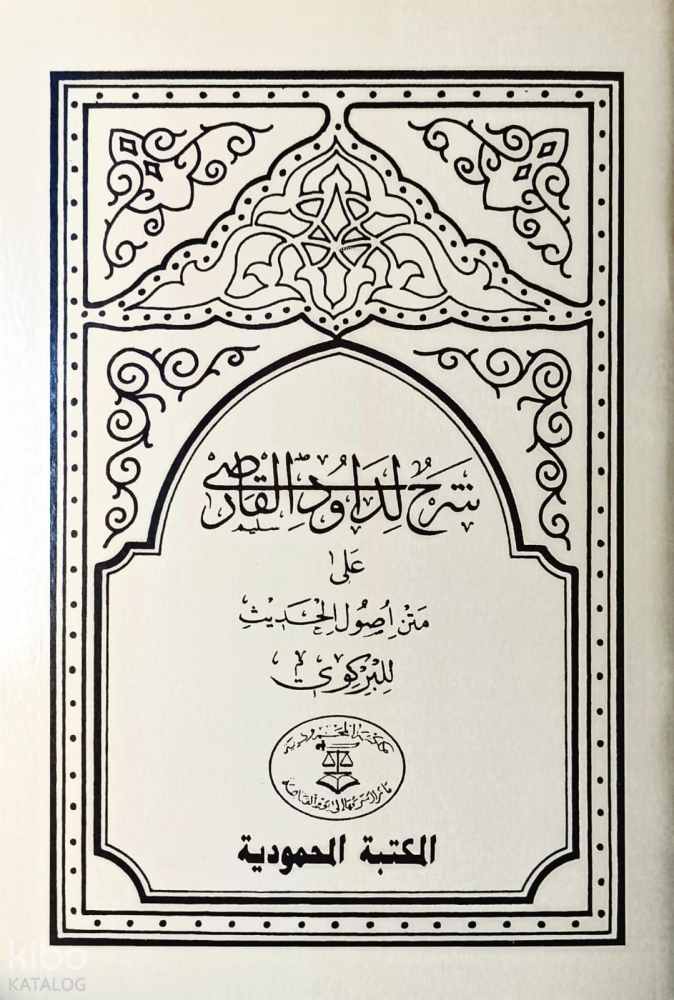 شَرْحُ لِدَاوُدِ القَارصِي
سليم
عَلىٰ
مَتْن اُصُول الحَديثِ
لِلْبِرْكوِي
المكتبة المحمودية
kibo
KATALOG